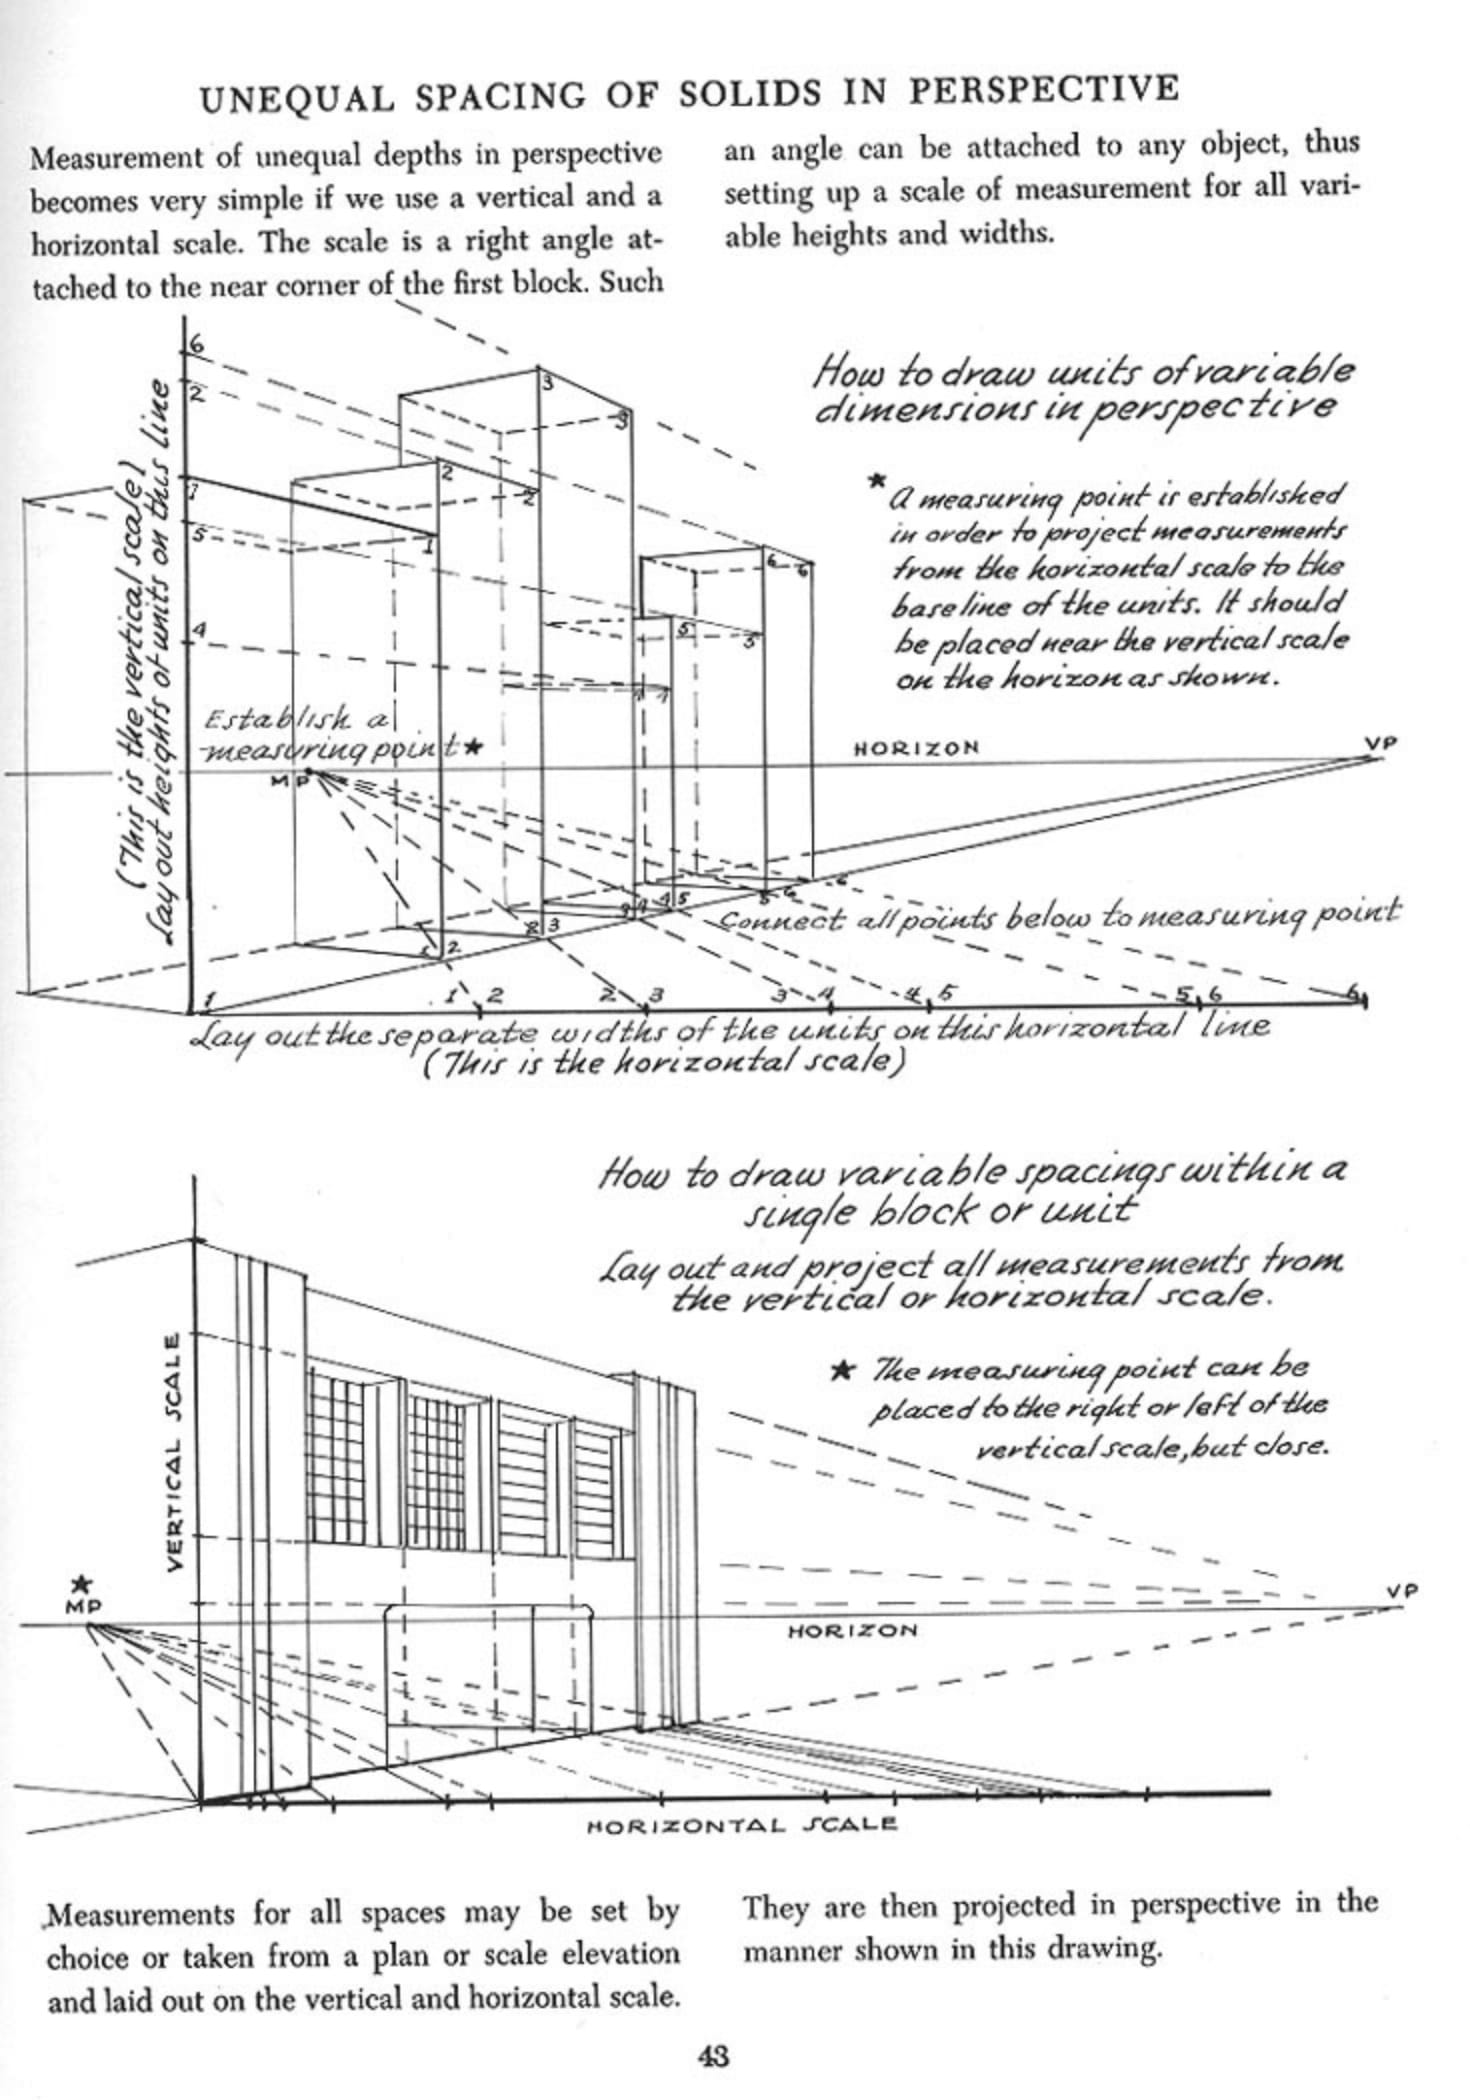 UNEQUAL SPACING OF SOLIDS IN PERSPECTIVE
Measurement of unequal depths in perspective
becomes very simple if we use a vertical and a
horizontal scale. The scale is a right angle at-
tached to the near corner of the first block. Such
an angle can be attached to any object, thus
setting up a scale of measurement for all vari-
able heights and widths.
How to draw units of variable
dimensions in perspective
* A measuring point is established
in order to project measurements
from the horizontal scale to the
base line of the units. It should
be placed near the vertical scale
on the horizon as shown.
(This is the vertical scale)
Lay out heights of units on this line
6
2
1
5
4
3
3
2
2
1
6
6
5
5
4
4
Establish a
measuring point ★
MP
HORIZON
VP
Connect all points below to measuring point
1 2
2 3
3 4
4 5
5 6
6
1
1 2
2 3
3 4
4 5
5 6
6
Lay out the separate widths of the units on this horizontal line
(This is the horizontal scale)
How to draw variable spacings within a
single block or unit
Lay out and project all measurements from
the vertical or horizontal scale.
★ The measuring point can be
placed to the right or left of the
vertical scale, but close.
VERTICAL SCALE
★
MP
VP
HORIZON
HORIZONTAL SCALE
Measurements for all spaces may be set by
choice or taken from a plan or scale elevation
and laid out on the vertical and horizontal scale.
They are then projected in perspective in the
manner shown in this drawing.
43